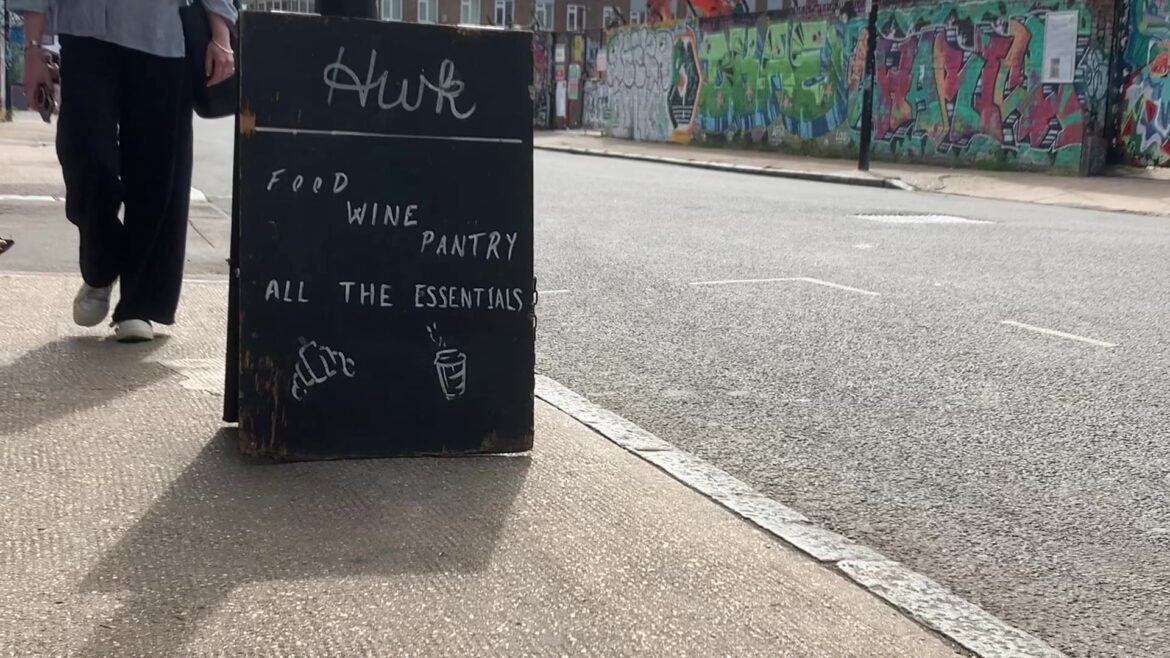 Hwk
FOOD
WINE
PANTRY
ALL THE ESSENTIALS